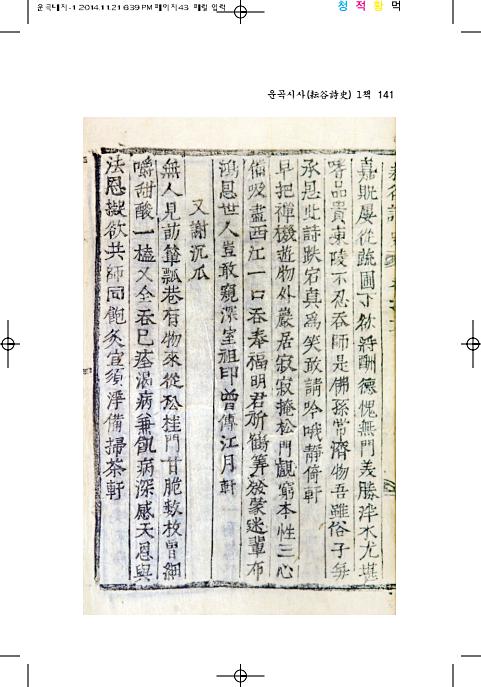 운곡시사-1 2014.11.21 6:39 PM 페이지43 매킨 입력
청 적 황 먹
운곡시사(耘谷詩史) 1책 141
嘉貺屢從蔬圃寸欲將酬德愧無門義勝泮水尤堪
嗜品貴東陵不忍吞師是佛孫常濟物吾雖俗子每
承恩此詩跌宕真爲笑敢請吟哦靜倚軒
早把禪機遊物外巖居寂寂掩松門觀窮本性三心
備吸盡西江一口吞奉福明君祈鶴筭發蒙迷輩布
鴻恩世人豈敢窺深室祖印曾傳江月軒
又謝沉瓜
無人見訪簞瓢巷有物來從松桂門甘脆數枚曾細
嚼甜酸一榼又全吞已痊渴病兼飢病深感天恩與
法恩擬欲共師同飽灸宣須淨備掃茶軒